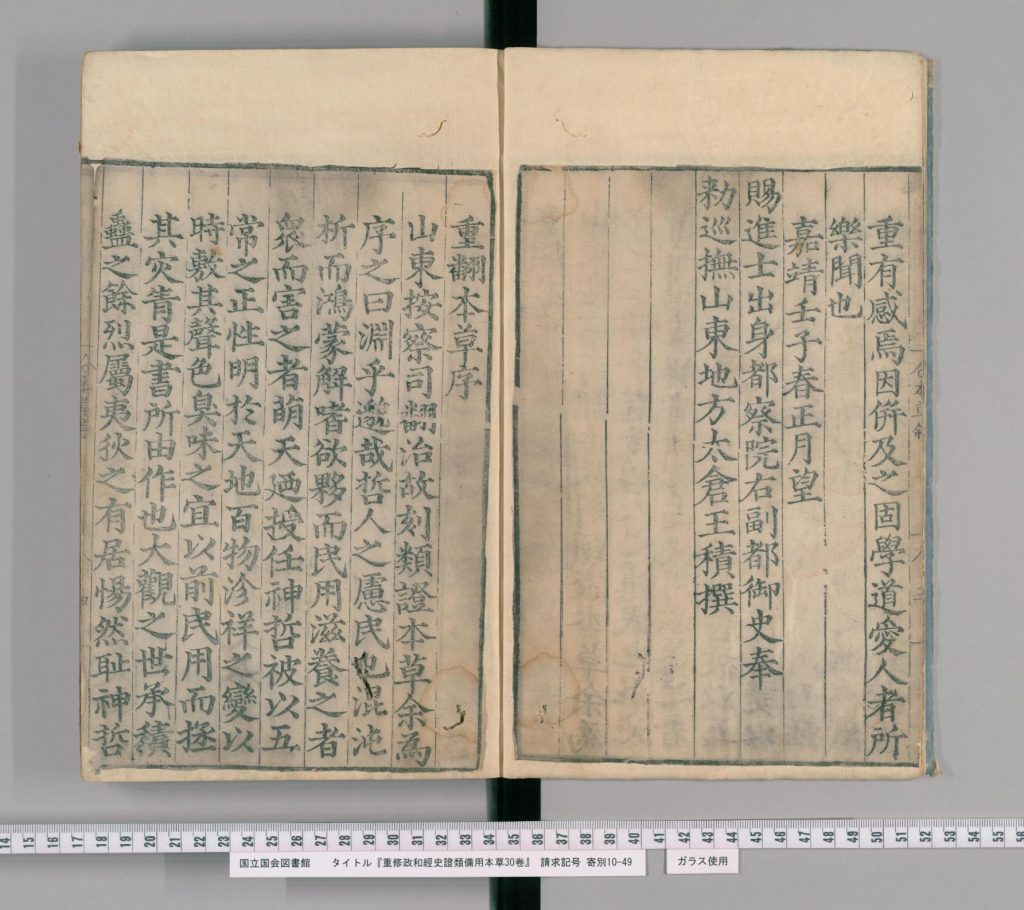 重有感焉因併及之固學道愛人者所
樂聞也
嘉靖壬子春正月望
賜進士出身都察院右副都御史奉
勑巡撫山東地方太倉王積撰
重翻本草序
山東按察司翻治故刻類證本草余為
序之曰淵乎邈哉哲人之慮民也混沌
析而鴻蒙解嗜欲夥而民用滋養之者
衆而害之者萌天廼授任神哲被以五
常之正性明於天地百物沴祥之變以
時敷其聲色臭味之宜以前民用而拯
其灾眚是書所由作也大觀之世承積
蠱之餘烈屬夷狄之有居惕然耻神哲
14 15 16 17 18 19 20 21 22 23 24 25 26 27 28 29 30 31 32 33 34 35 36 37 38 39 40 41 42 43 44 45 46 47 48 49 50 51 52 53 54 55 56
国立国会図書館 タイトル『重修政和經史證類備用本草30巻』 請求記号 寄別10-49
ガラス使用